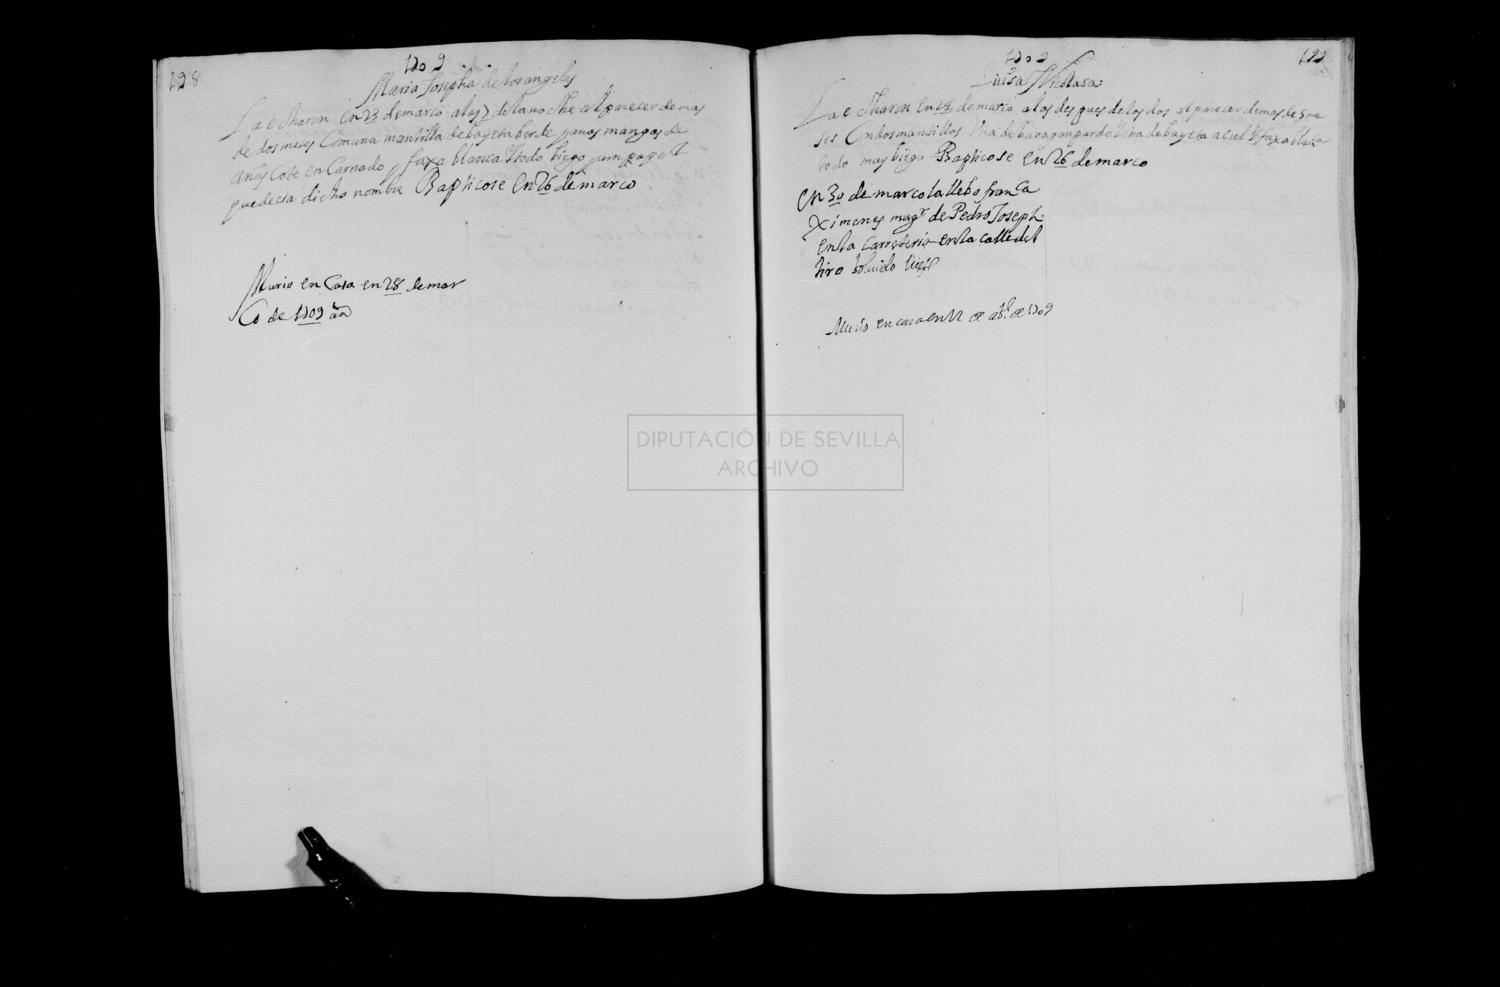 198
1709
Maria Josepha de los angeles
La echaron en 23 de março a las 7 de la noche al parecer de mas
de dos meses Con una mantilla de bayeta berde y unas mangas de
encarnado y faxa blanca todo biejo y un papel
que decia dicho nombre Bapticose en 26 de março
Murio en Casa en 28 de mar
Co de 1709 años
1709
199
Luisa Nicolasa
La echaron en 24 de março a las despues de las dos al parecer de mas de 5 me
ses Con dos mantillos Una de baragan pardo Otra de bayeta açul y faxa blanca
todo muy biejo Bapticose en 26 de março
en 30 de março la llebo franca
Ximenes mugr de Pedro Joseph
en la Carreteria en la calle del
tiro
Murio en casa en 11 de abl de 1709
DIPUTACIÓN DE SEVILLA
ARCHIVO